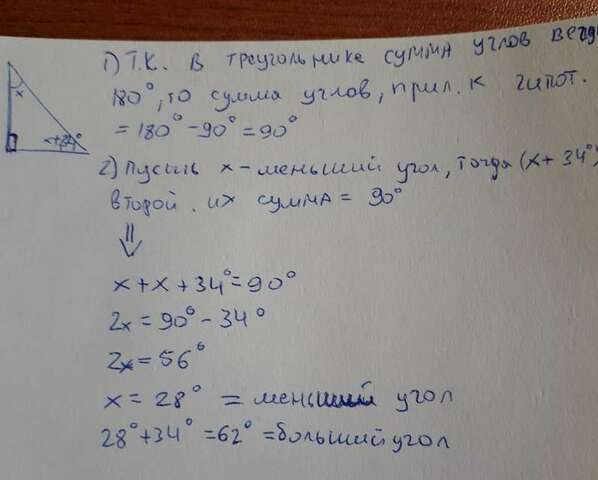 1) Т.К. В треугольнике сумма углов
180°, то сумма углов, прил. к гипот.
= 180° - 90° = 90°
x
x+34°
2) Пусть x - меньший угол, тогда (x + 34°)
второй. их сумма = 90°
⇓
x + x + 34° = 90°
2x = 90° - 34°
2x = 56°
x = 28° = меньший угол
28° + 34° = 62° = больший угол